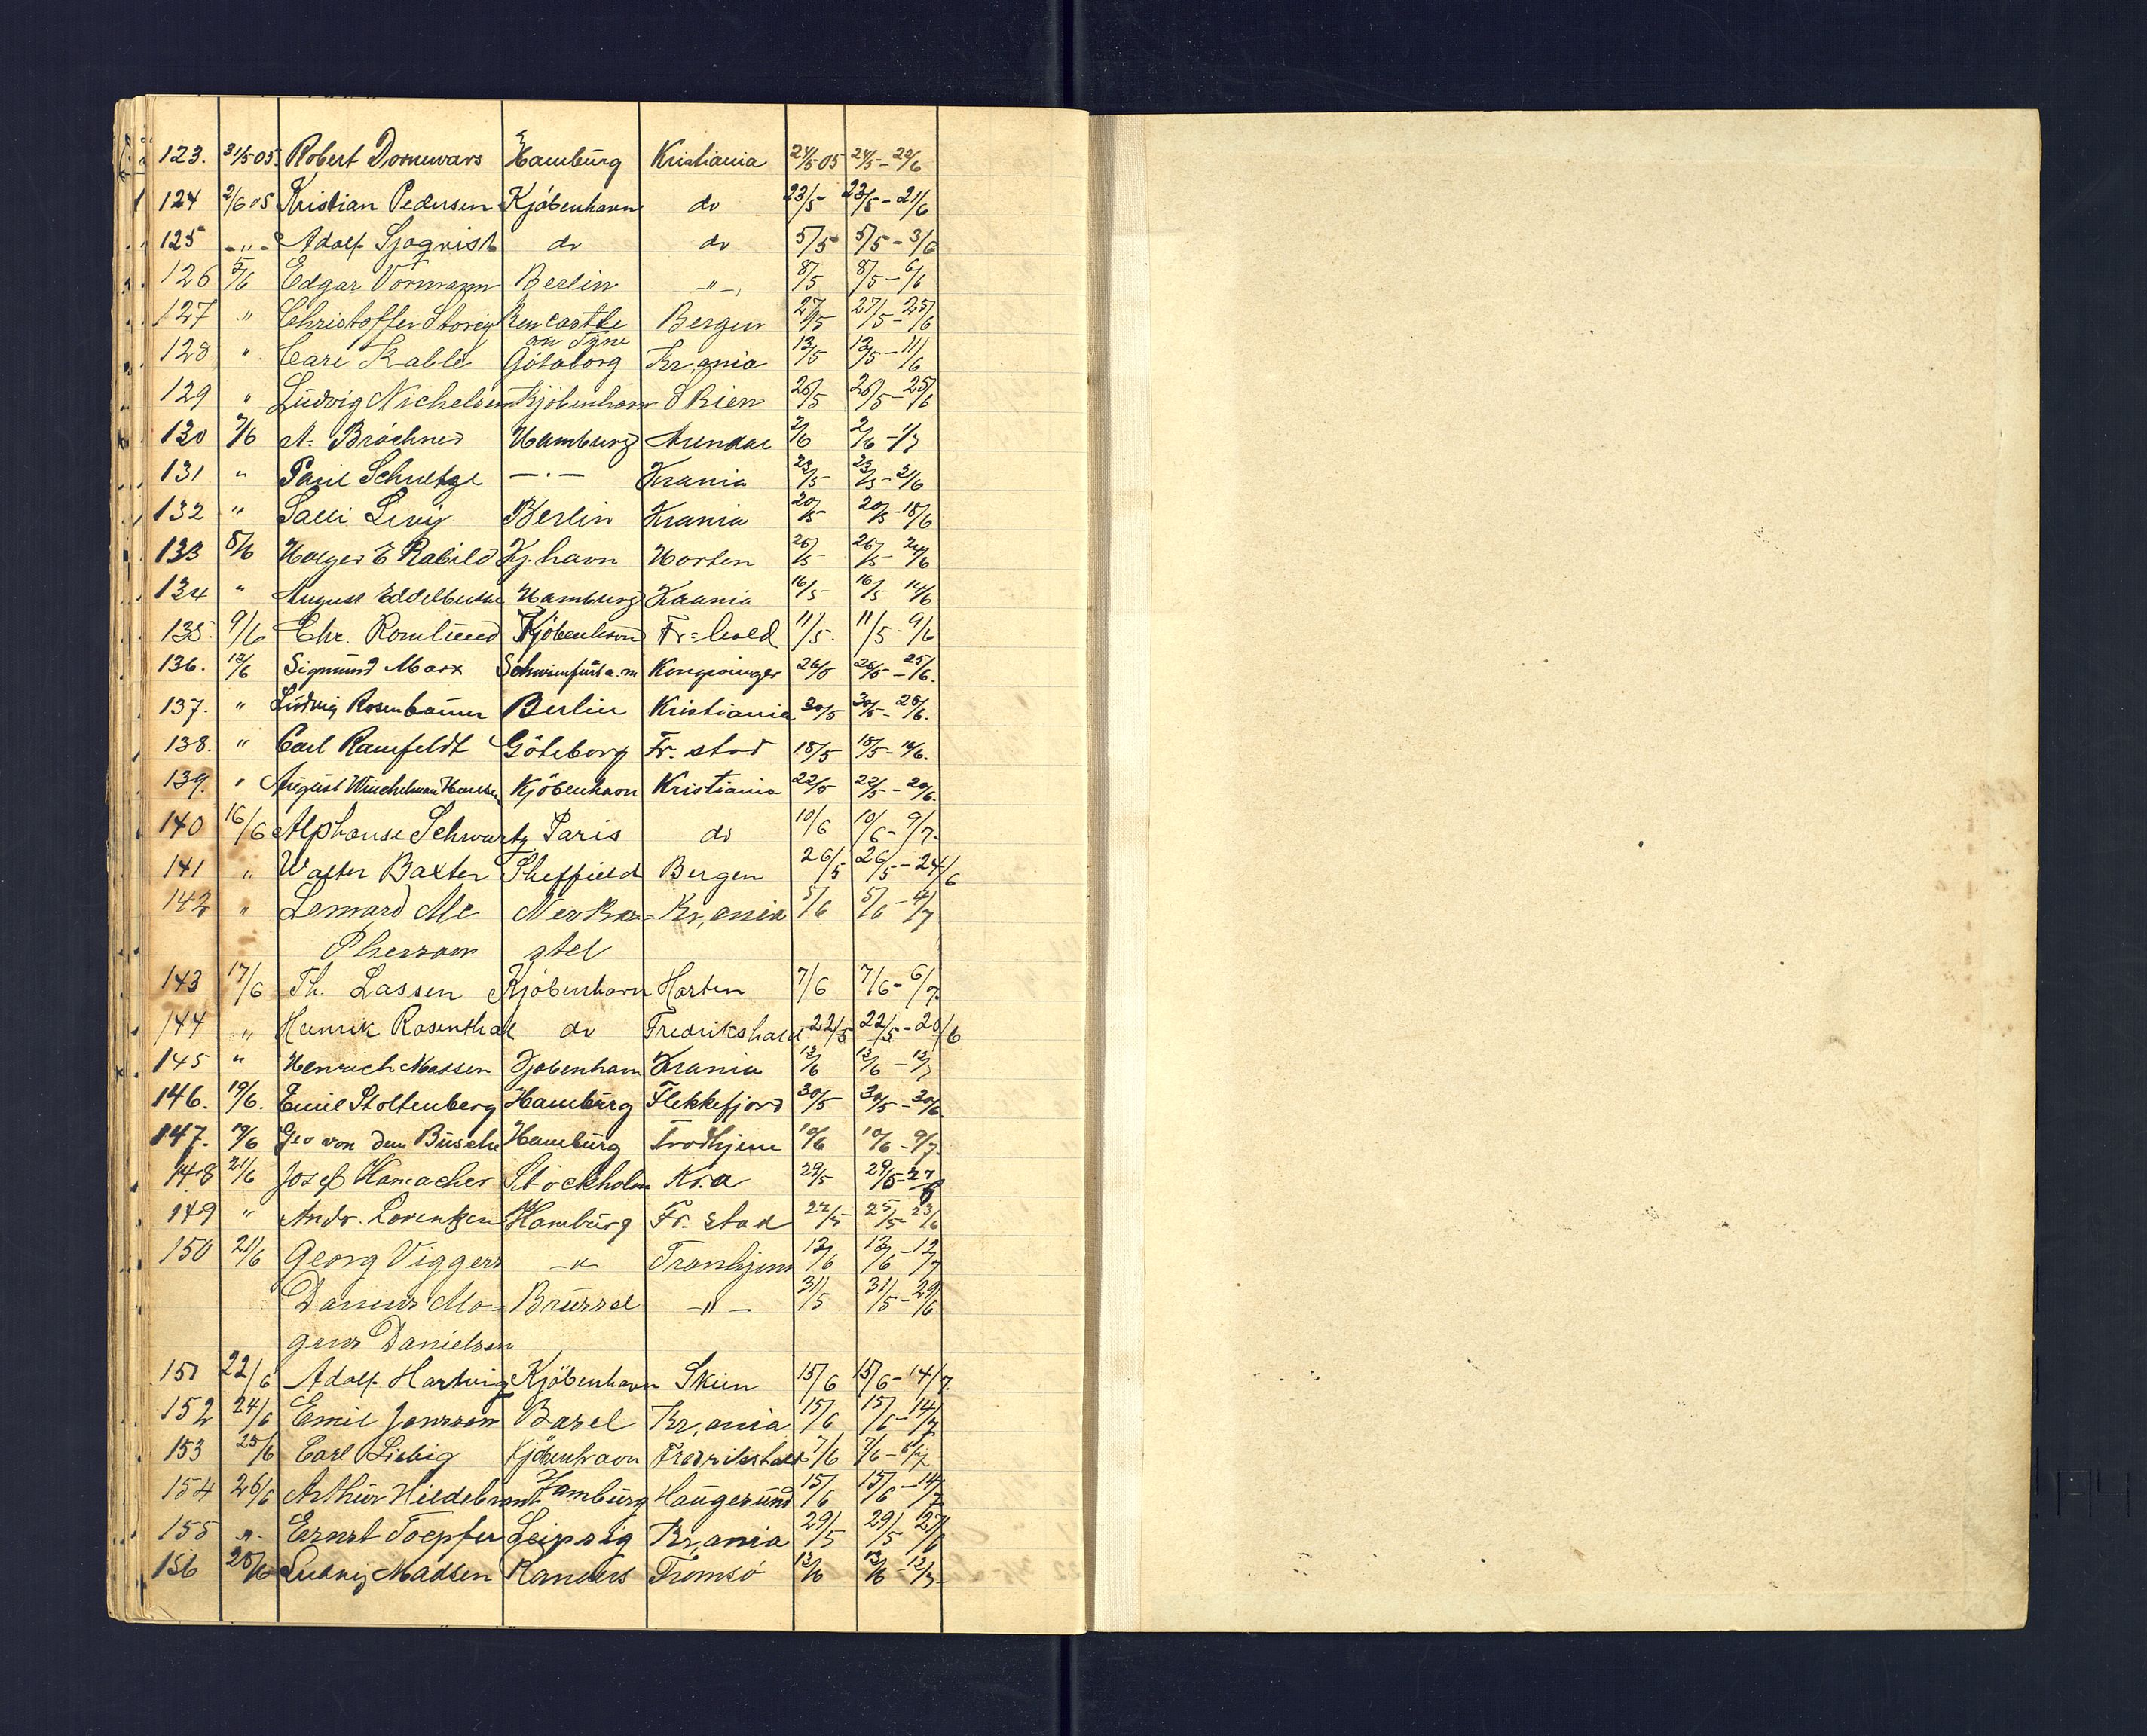 123. 31/5 05. Robert Dornwars Hamburg Kristiania 24/5 05 24/5 - 22/6
124 2/6 05 Kristian Pedersen Kjöbenhavn do 23/5 23/5 - 21/6
125 - " - Adolf Sjoqvist do do 5/5 5/5 - 3/6
126 5/6 Edgar Vormann Berlin - " - 8/5 8/5 - 6/6
127 " Christoffer Storey New castle Bergen 27/5 27/5 - 25/6
on Tyne
128 " Carl Kable Götaborg Kr,ania 13/5 13/5 - 11/6
129 " Ludvig Nichelsen Kjöbenhavn Skien 26/5 26/5 - 25/6
130 7/6 A. Bröchner Hamburg Arendal 2/6 2/6 - 1/7
131 " Paul Schultze - . - Krania 23/5 23/5 - 21/6
132 " Salli Levy Berlin Krania 20/5 20/5 - 18/6
133 8/6 Holger E Rabild Kj.havn Horten 26/5 26/5 - 24/6
134 " August Hamburg Krania 16/5 16/5 14/6
135. 9/6 Chr. Romlund Kjöbenhavn Fr=hald 11/5. 11/5 - 9/6
136. 13/6 Sigmund Marx Schweinfurt a. m Kongsvinger 26/5 26/5 - 25/6.
137. " Ludvig Rosenbaum Berlin Kristiania 30/5 30/5 - 28/6.
138. " Carl Ramfeldt Göteborg Fr. stad 18/5 18/5 - 16/6.
139. " August Winchelman Hansen Kjöbenhavn Kristiania 22/5 22/5 - 20/6.
140 16/6 Alphonse Schwartz Paris do 10/6 10/6 - 9/7.
141 " Walter Baxter Sheffield Bergen 26/5 26/5 - 24/6
142 " Lennard Mc Kr,ania 5/6 5/6 - 4/7
Pherson stel
143 17/6 Th. Lassen Kjöbenhavn Horten 7/6 7/6 - 6/7.
144 " Henrik Rosenthal do Fredrikshald 22/5 22/5 - 20/6
145 " Henrich Massen Kjöbenhavn Krania 13/6 13/6 - 12/7
146. 19/6. Emil Stoltenberg Hamburg Flekkefjord 30/5 30/5 - 30/6.
147. 19/6 Geo von dem Busche Hamburg Trodhjem 10/6 10/6 - 9/7.
148 21/6 Josef Hamacher Stockholm Kr.a 29/5 29/5 - 27/6
149 " Andr. Lorentzen Hamburg Fr. stad 25/5 25/5 - 23/6
150 21/6 Georg Viggers - " - Tronhjem 13/6 13/6 - 12/7
Danius Mo- Brüssel - " - 31/5 31/5 - 29/6
gens Danielsen
151 22/6 Adolf Hartvig Kjöbenhavn Skien 15/6 15/6 - 14/7.
152 24/6 Emil Jonsson Basel Kr,ania 15/6 15/6 - 14/7
153 25/6 Carl Liebig Kjöbenhavn Fredrikshald 7/6 7/6 - 6/7
154 26/6 Arthur Hildebrant Hamburg Haugesund 15/6 15/6 - 14/7
155 - " - Ernst Toepfer Leipzig Kr,ania 29/5 29/5 27/6
156 28/6 Ludvig Madsen Randers Tromsö 13/6 13/6 - 12/7